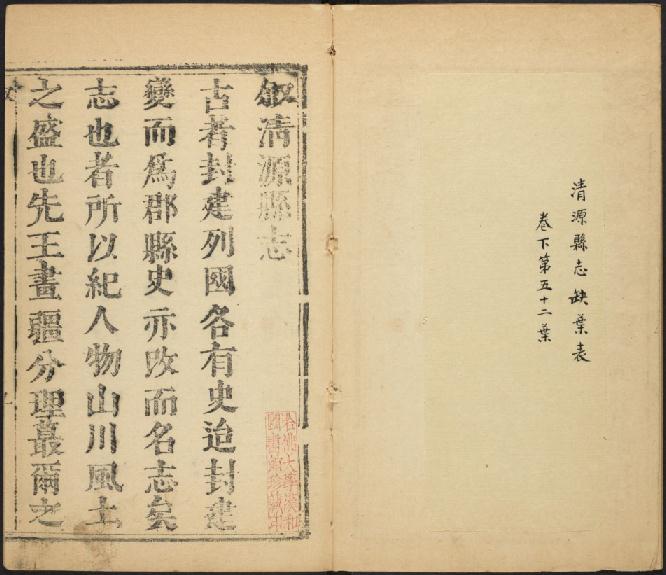 清源縣志缺葉表
卷下第五十二葉
叙清源縣志
古者封建列國各有史迨封建
變而爲郡縣史亦改而名志矣
志也者所以紀人物山川風土
之盛也先王畫疆分理蕞爾之
哈佛大學漢和
圖書館珍藏印